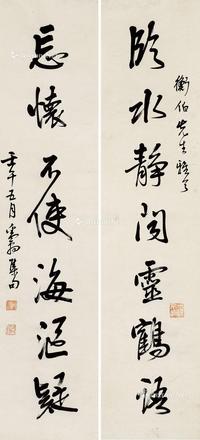 衡伯先生雅令
臨水靜聞靈鶴語
忘懷不使海漚疑
壬午五月
集句